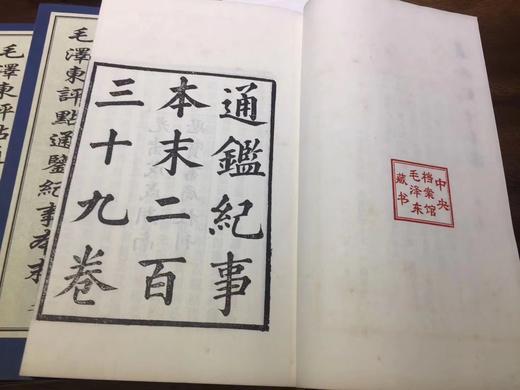 中央
档案馆
毛泽东
藏书
通鑑紀事
本末二百
三十九卷
毛澤東評點通鑒紀事本末
毛澤東評點